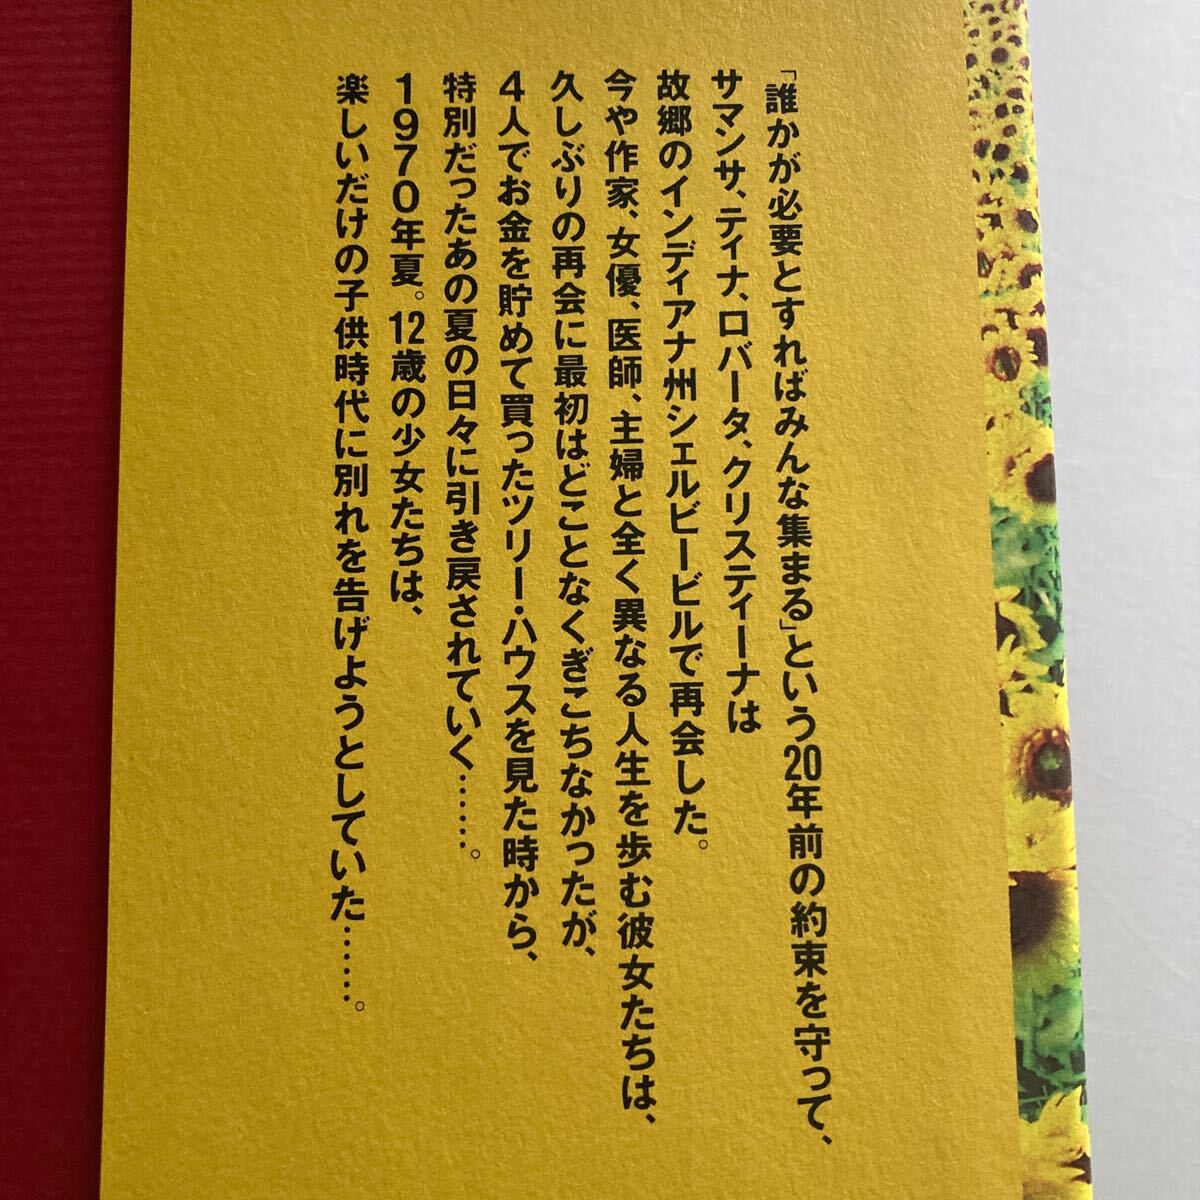 「誰かが必要とすればみんな集まる」という20年前の約束を守って、
サマンサ、ティナ、ロバータ、クリスティーナは
故郷のインディアナ州シェルビービルで再会した。
今や作家、女優、医師、主婦と全く異なる人生を歩む彼女たちは、
久しぶりの再会に最初はどことなくぎこちなかったが、
4人でお金を貯めて買ったツリー・ハウスを見た時から、
特別だったあの夏の日々に引き戻されていく……。
1970年夏。12歳の少女たちは、
楽しいだけの子供時代に別れを告げようとしていた……。